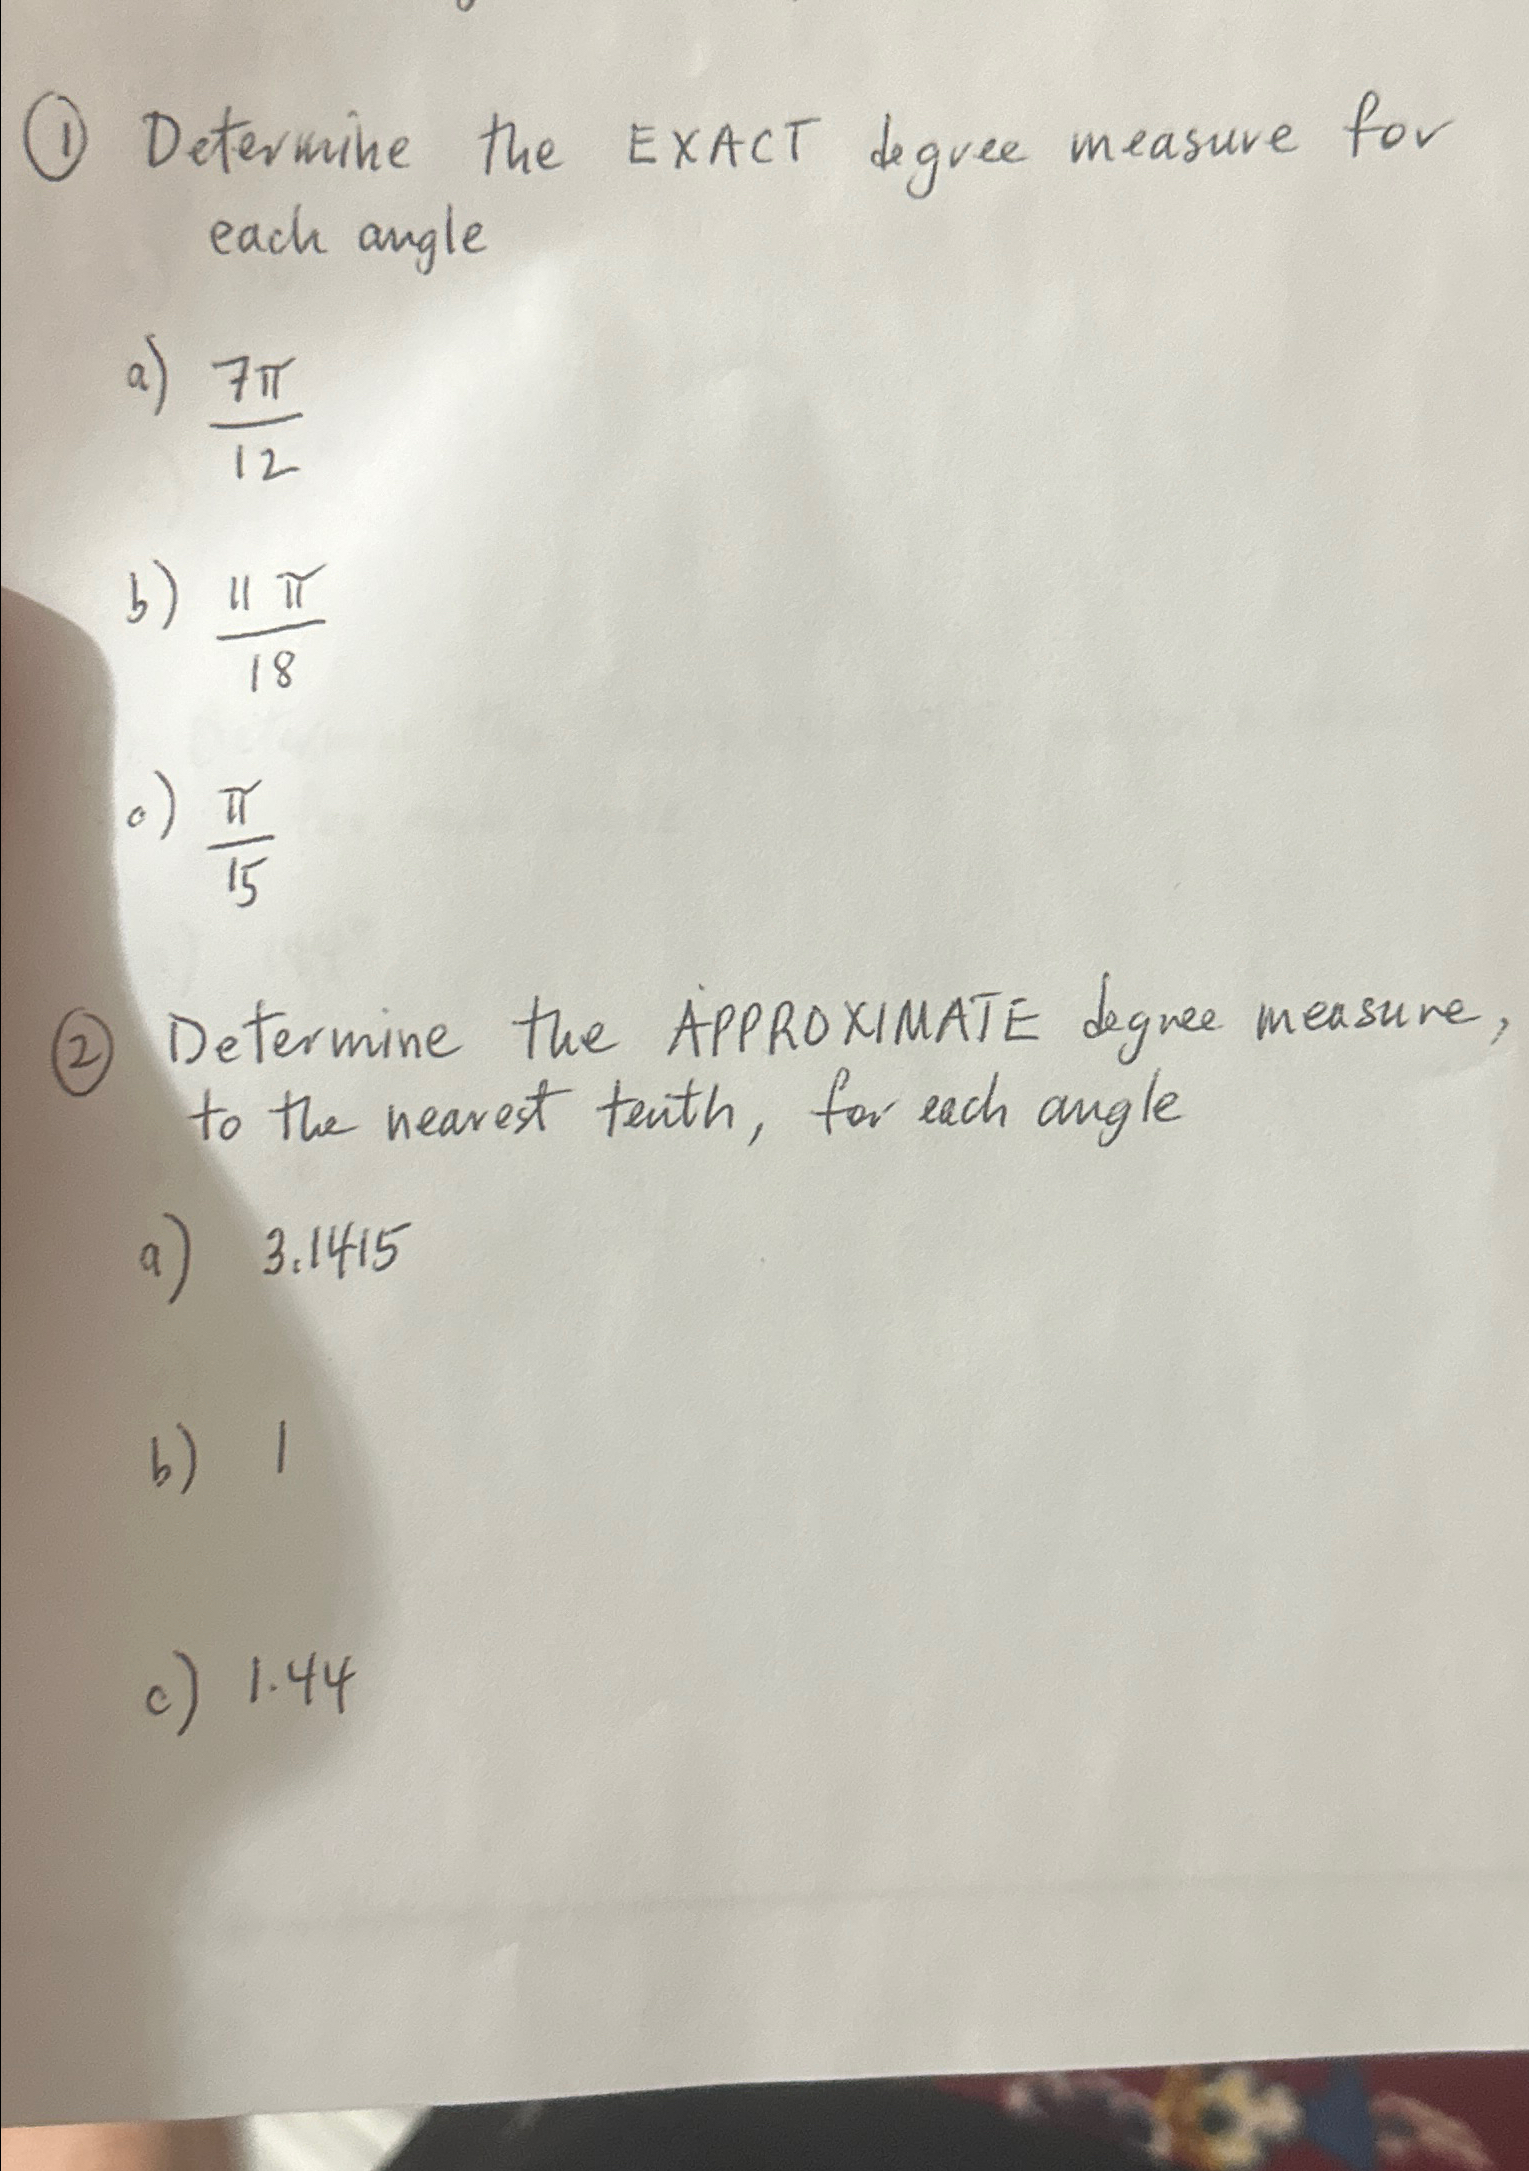 ① Determine the EXACT degree measure for
each angle
a) 7π/12
b) 11π/18
c) π/15
② Determine the APPROXIMATE degree measure,
to the nearest tenth, for each angle
a) 3.1415
b) 1
c) 1.44